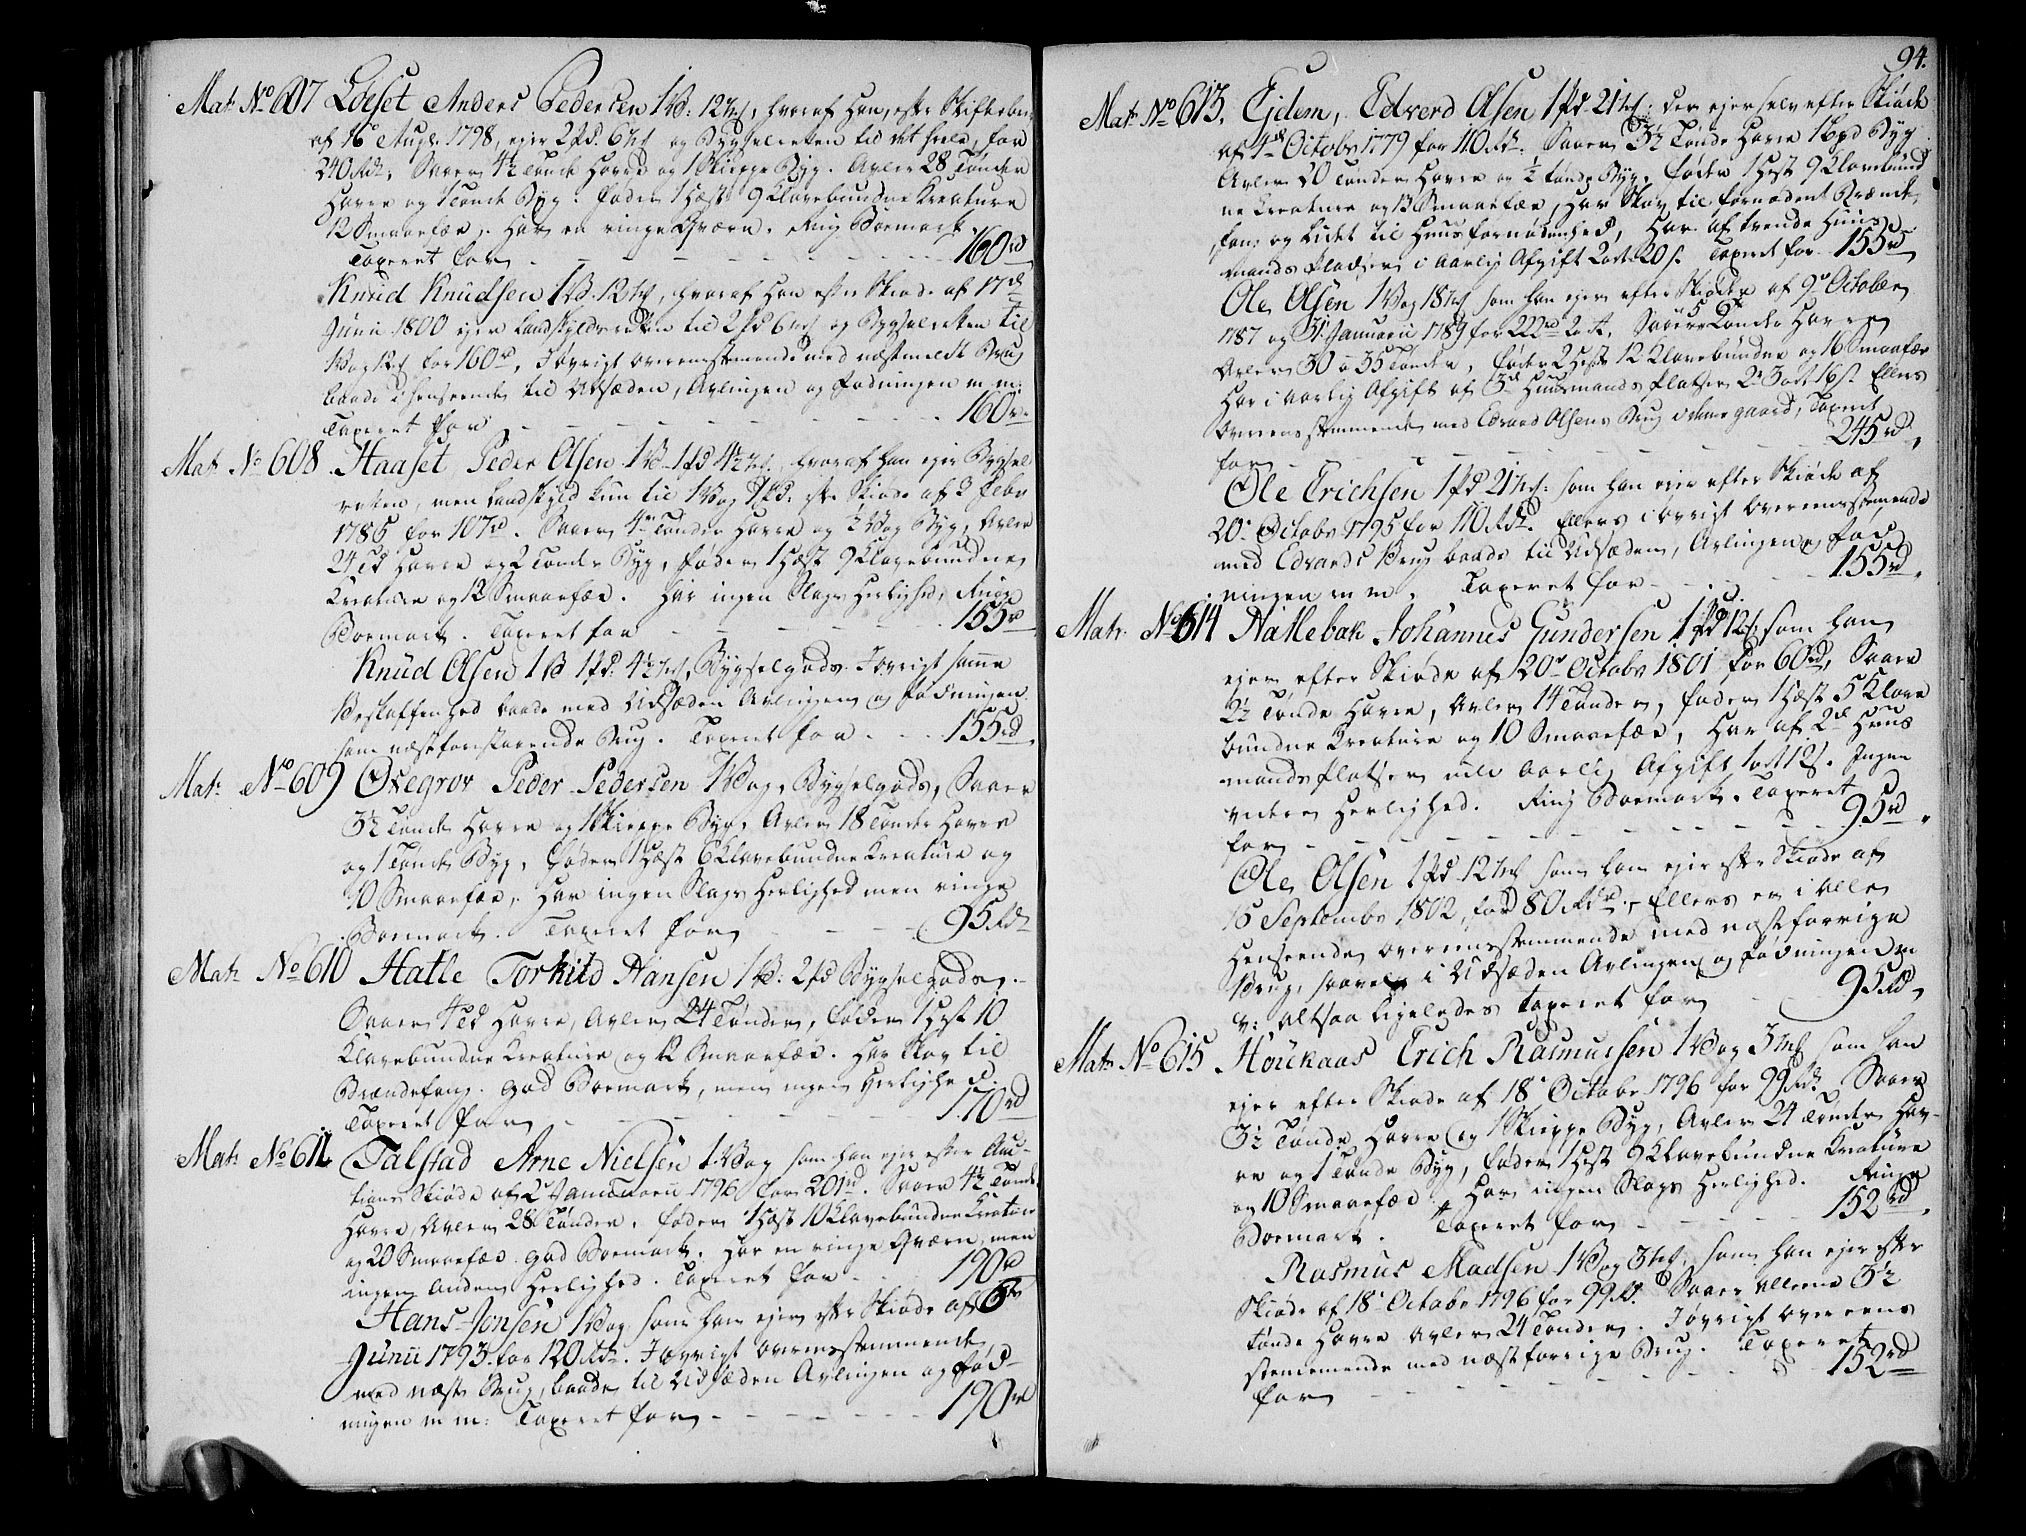 Mat: No 607 Loeset Anders Pedersen 1 V: 12 mk, hvoraf han, efter Skiftebrev
af 16de Augs. 1798, ejer 2 pd. 6 mk og Bygselretten til det heele, for
240 Rdr. Saaer 4½ Tønde Havre og 1 Skieppe Byg. Avler 28 Tønder
Havre og 1 Tønde Byg. føder 1 Hæst 9 Klavebundne Kreature
12 Smaafæe. Har en ringe Qværn. Ring Boemark.
Taxeret for - - - 160 rd
Knud Knudsen 1 V. 12 mk, hvoraf han efter Skiøde af 17de
Junii 1800 ejer Landskyldretten til 2 pd 6 mk og Bygselretten til
1 Vog 12 for 160 rd, I øvrigt overensstemmende med næstmeldte Brug
baade i henseende til Udsæden, Avlingen og fødningen m. m.
Taxeret for - - - 160 r
Mat: No 608 Haaset Peder Olsen 1 V 1 pd 4½ mk, hvoraf han ejer Bygsel
retten, men Landskyld kun til 1 Vog 1 pd: efter Skiøde af 3 Febr
1786 for 107 rd. Saaer 4 Tønder Havre og ½ Vog Byg, Avler
24 Td Havre og 2 Tønder Byg, føder 1 Hæst 9 Klavebundne
Kreature og 12 Smaafæe. har ingen Slags Herlighed, Ringe
Boemark. Taxeret for - - - 155 rd
Knud Olsen 1 V 1 pd: 4½ mk, Bygselgods. I øvrigt samme
Beskaffenhed baade med Udsæden Avlingen og fødningen
som næstforestaaende Brug. Taxeret for - - - 155 rd.
Mat: No 609 Oxegrov Peder Pedersen 1 Vog, Bygselgods, Saaer
3½ Tønde Havre og 1 Skieppe Byg, Avler 18 Tønder Havre
og 1 Tønde Byg, føder 1 Hæst 6 Klavebundne Kreature og
10 Smaafæe, Har ingen Slags Herlighed men ringe
Boemark. Taxeret for - - - 95 Rdr
Mat: No 610 Hatle Torkild Hansen 1 V. 2 pd Bygselgods.
Saaer 4 Td Havre, Avler 24 Tønder, føder 1 Hæst 10
Klavebundne Kreature og 12 Smaafæe. Har Skov til
Brændefang. god Boemark, men ingen Herlighed.
Taxeret for - - - 170 rd
Mat: No 611 Talstad Arne Nielsen 1 Vog som han ejer efter Auc-
tions Skiøde af 2 Januarii 1796 for 201 rd. Saaer 4½ Tønde
Havre, Avler 28 Tønder, føder 1 Hæst 10 Klavebundne Kreature
og 20 Smaafæe. god Boemark. Har en ringe Qværn, men
ingen anden Herlighed. Taxeret for - 190 rd
Hans Jonsen 1 Vog som han ejer efter Skiøde af 6te
Junii 1793 for 120 Rdr. I øvrigt overensstemmende
med næste Brug, baade til Udsæden Avlingen og fød-
ningen m m: Taxeret for - - - 190 rd
94.
Mat: No 613. Ejdem, Edverd Olsen 1 pd. 21 mk: den ejer selv efter Skiøde
af 4de Octobr 1779 for 110 Rdr. Saaer 3½ Tønde Havre 1 Spd Byg
Avler 20 Tønder Havre og ½ Tønde Byg, føder 1 Hæst 9 Klavebund
ne Kreature og 13 Smaafæe, har Skov til fornøden Brænde-
fang og Lidet til Huusfornødenhed, Har af tvende Huus-
mands pladser i Aarlig Afgift 2 ort 20 s. Taxeret for 155 rd
Ole Olsen 1 Vog 18 mk som han ejer efter Skiøder af 9de October
1787 og 31 Januarii 1789 for 222 rd 2 ort, Saaer 5 Tønder Havre
Avler 30 à 35 Tønder, føder 2 Hæste 12 Klavebundne og 16 Smaafæe
Har i Aarlig Afgift af 3de Huusmands pladser 2 r 3 ort 16 s. Ellers
overensstemmende med Edvard Olsens Brug i denne gaard, Taxeret
for - - - 245 rd.
Ole Erichsen 1 pd 21 mk: som han ejer efter Skiøde af
20de Octobr 1795 for 110 Rdr. Ellers i øvrigt overensstemmende
med Edvards Brug baade til Udsæden, Avlingen og fød
ningen m m. Taxeret for - - - 155 rd.
Mat: No 614 Hatlebak Johannes Gundersen 1 pd 12 som han
ejer efter Skiøde af 20de Octobr 1801 for 60 rd, Saaer
2½ Tønde Havre, Avler 14 Tønder, føder 1 Hæst 5 Klave
bundne Kreature og 10 Smaafæe, Har af 2de Huus
mandspladser udi Aarlig Afgift 1 ort 12 s. Ingen
videre Herlighed. Ring Boemark. Taxeret
for - - - 95 rd.
Ole Olsen 1 pd 12 mk som han ejer efter Skiøde af
16 Septembr 1802, for 80 Rdr. Ellers er i alle
Henseender overensstemmende med næstforrige
Brug, saavel i Udsæden Avlingen og fødningen m
v: altsaa ligeledes taxeret for - 95 Rd.
Mat: No 615 Houkaas Erich Rasmussen 1 Vog 3 mk som han
ejer efter Skiøde af 18de Octobr 1796 for 99 Rdr. Saaer
3½ Tønde Havre og 1 Skieppe Byg, Avler 24 Tønder Hav-
re og 1 Tønde Byg, føder 1 Hæst 9 Klavebundne Kreature
og 10 Smaafæe, Har ingen Slags Herlighed. Ringe
Boemark. Taxeret for - - - 152 rd.
Rasmus Madsen 1 Vog 3 mk som han ejer efter
Skiøde af 18de Octobr 1796 for 99 Rd. Saaer allene 3½
Tønde Havre Avler 24 Tønder. I øvrigt overeens
stemmende med næstforrige Brug. Taxeret
for - - - 152 rd